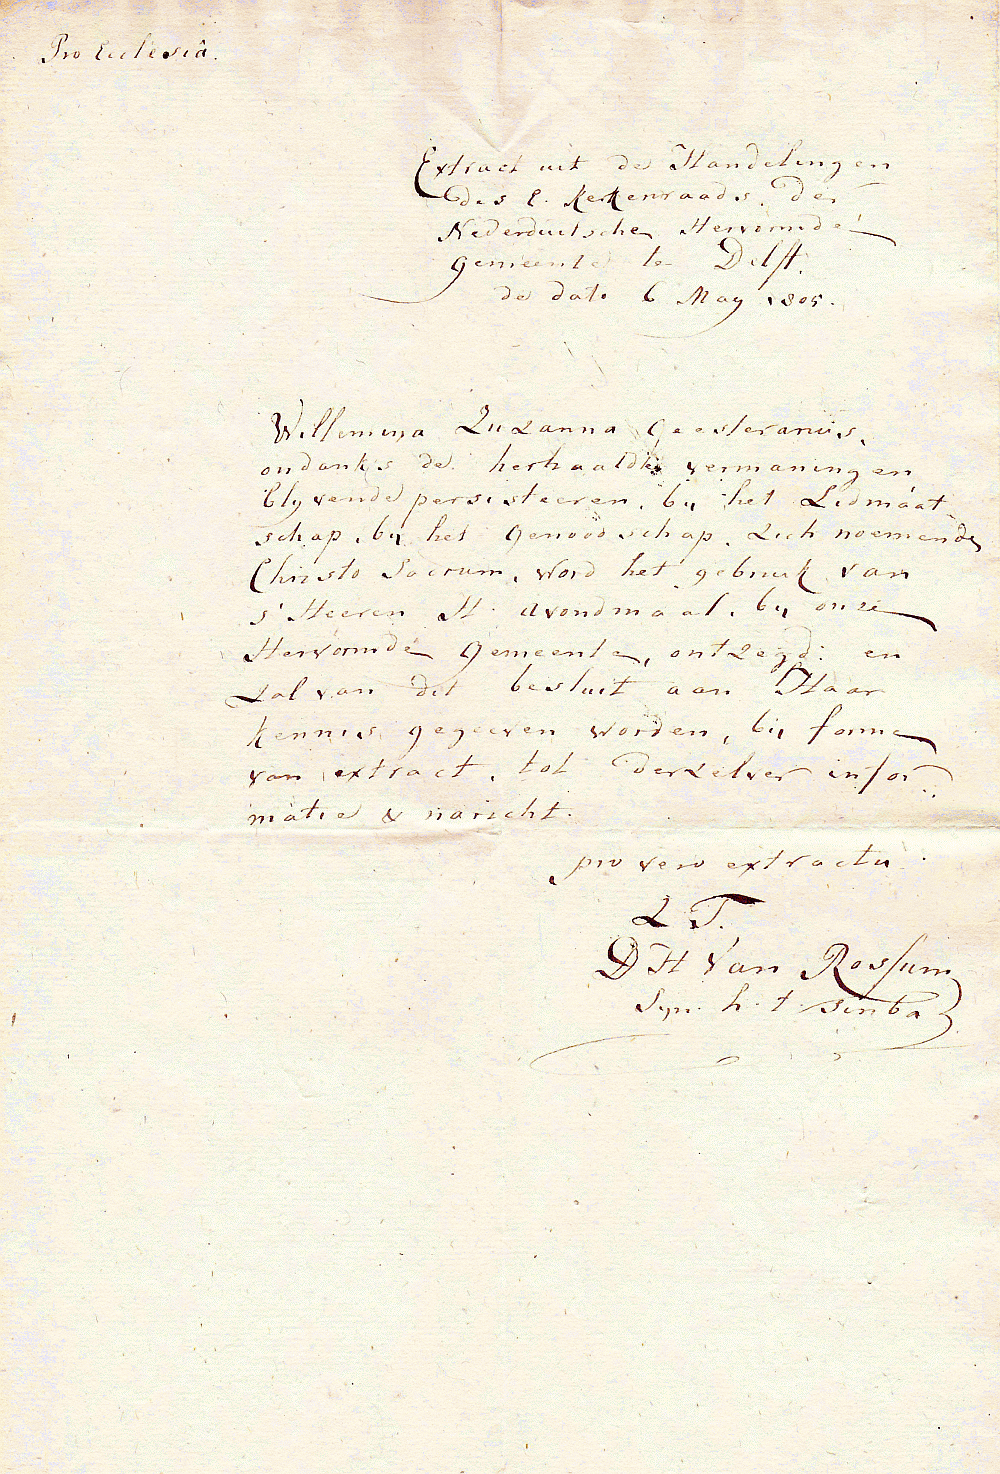 Pro Ecclesiâ.
Extract uit de Handelingen
des E. Kerkenraads. der
Nederduitsche Hervormde
gemeente te Delft.
de dato 6 May 1805.
Willemina Zuzanna Geesteranus,
ondanks de herhaalde vermaningen
blyvende persisteeren, bij het Lidmaat-
schap, bij het genoodschap. zich noemende
Christo Sacrum, word het gebruik van
s' Heeren H. avondmaal, bij onze
Hervormde gemeente, ontzegd: en
zal van dit besluit aan Haar
kennis gegeeven worden, bij forme
van extract, tot derzelver infor-
matie & naricht.
pro vero extractu.
L T.
D H Van Rossum
Syn. h. t. scriba